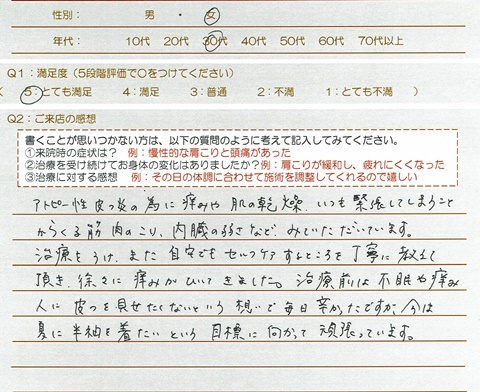 性別： 男 ・ 女
年代： 10代 20代 30代 40代 50代 60代 70代以上
Q1：満足度（5段階評価で○をつけてください）
5：とても満足 4：満足 3：普通 2：不満 1：とても不満
Q2：ご来店の感想
書くことが思いつかない方は、以下の質問のように考えて記入してみてください。
①来院時の症状は？ 例：慢性的な肩こりと頭痛があった
②治療を受け続けてお身体の変化はありましたか？例：肩こりが緩和し、疲れにくくなった
③治療に対する感想 例：その日の体調に合わせて施術を調整してくれるので嬉しい
アトピー性皮フ炎の為に痒みや肌の乾燥、いつも緊張してしまうこと
からくる筋肉のこり、内臓の弱さなど、みていただいています。
治療をうけ、また自宅でもセルフケアするところを丁寧に教えて
頂き、徐々に痒みがひいてきました。治療前は不眠や痒み
人に皮フを見せたくないという想いで毎日辛かったですが、今は
夏に半袖を着たいという目標に向かって頑張っています。